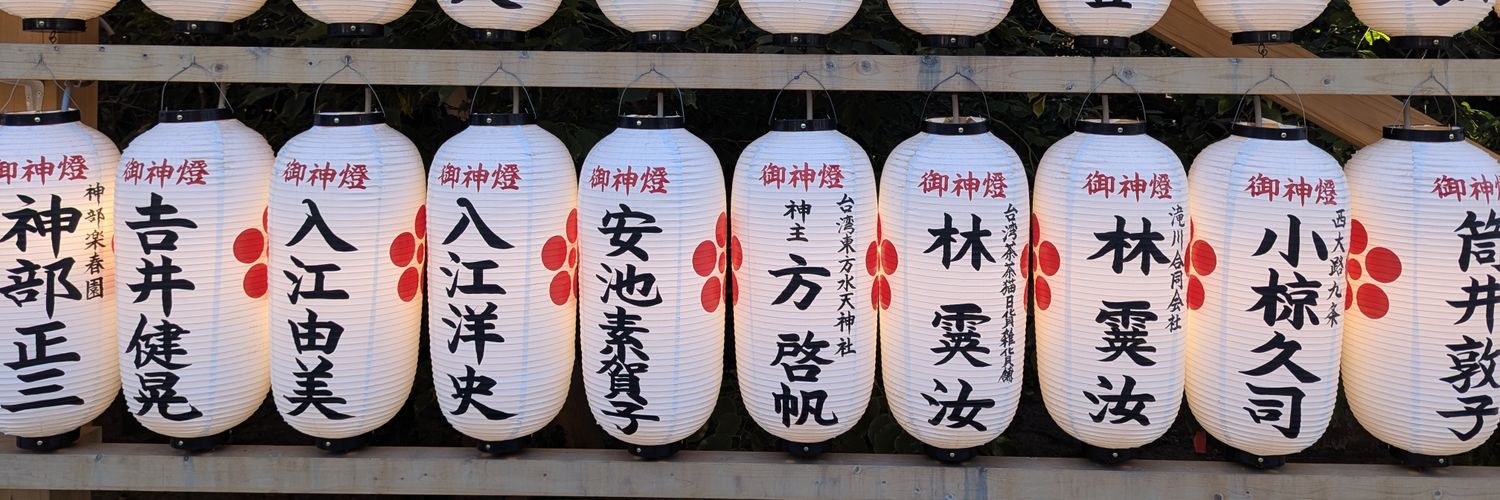 御神燈
神部楽春園
神部正三
御神燈
吉井健晃
御神燈
入江由美
御神燈
入江洋史
御神燈
安池素賀子
御神燈
台湾東方水天神社
神主 方 啓帆
御神燈
台湾茶茶猫日貨雑貨舗
林 霙汝
御神燈
滝川合同会社
林 霙汝
御神燈
西大路九条
小椋久司
御神
筒井敦子